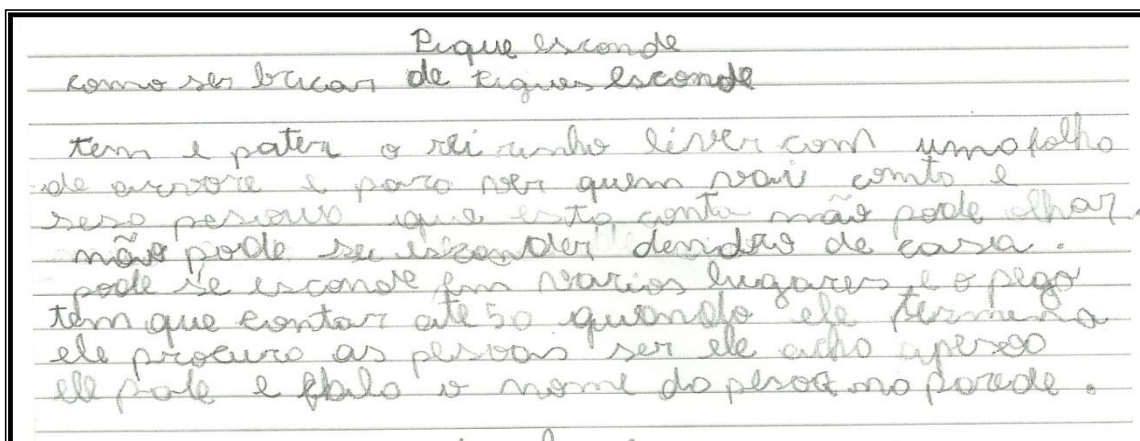 Pique esconde
como ser bricar de piques esconde
tem e pater o com uma folha
de arvore e para ver quem vai comta e
pesious que esta conta não pode olhar.
não pode se esconder demdro de casa.
pode se esconde em varios lugares e o pego
tem que contar até 50 quando ele termina
ele procura as pessoas ser ele acho apesoo
ele e fala o nome da pesoa na parede.